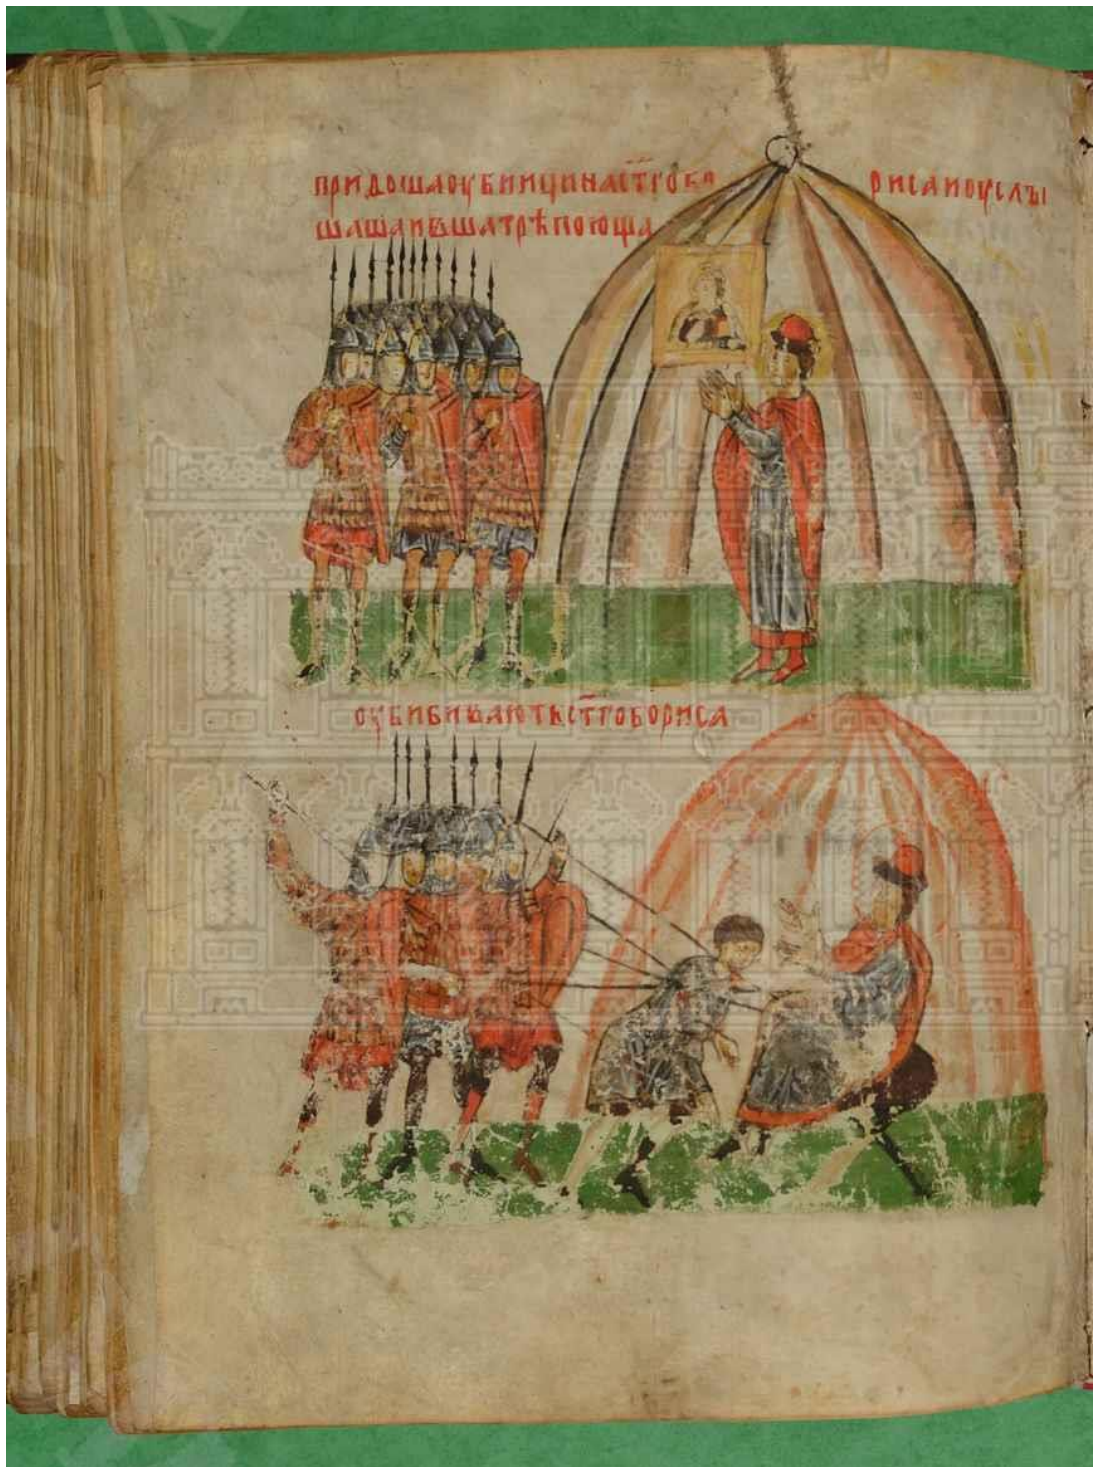 придошаоубиицинаст҃гобо рисаиоуслы
шашаивъшатрѣпоюща
оубибиваютьст҃гобориса